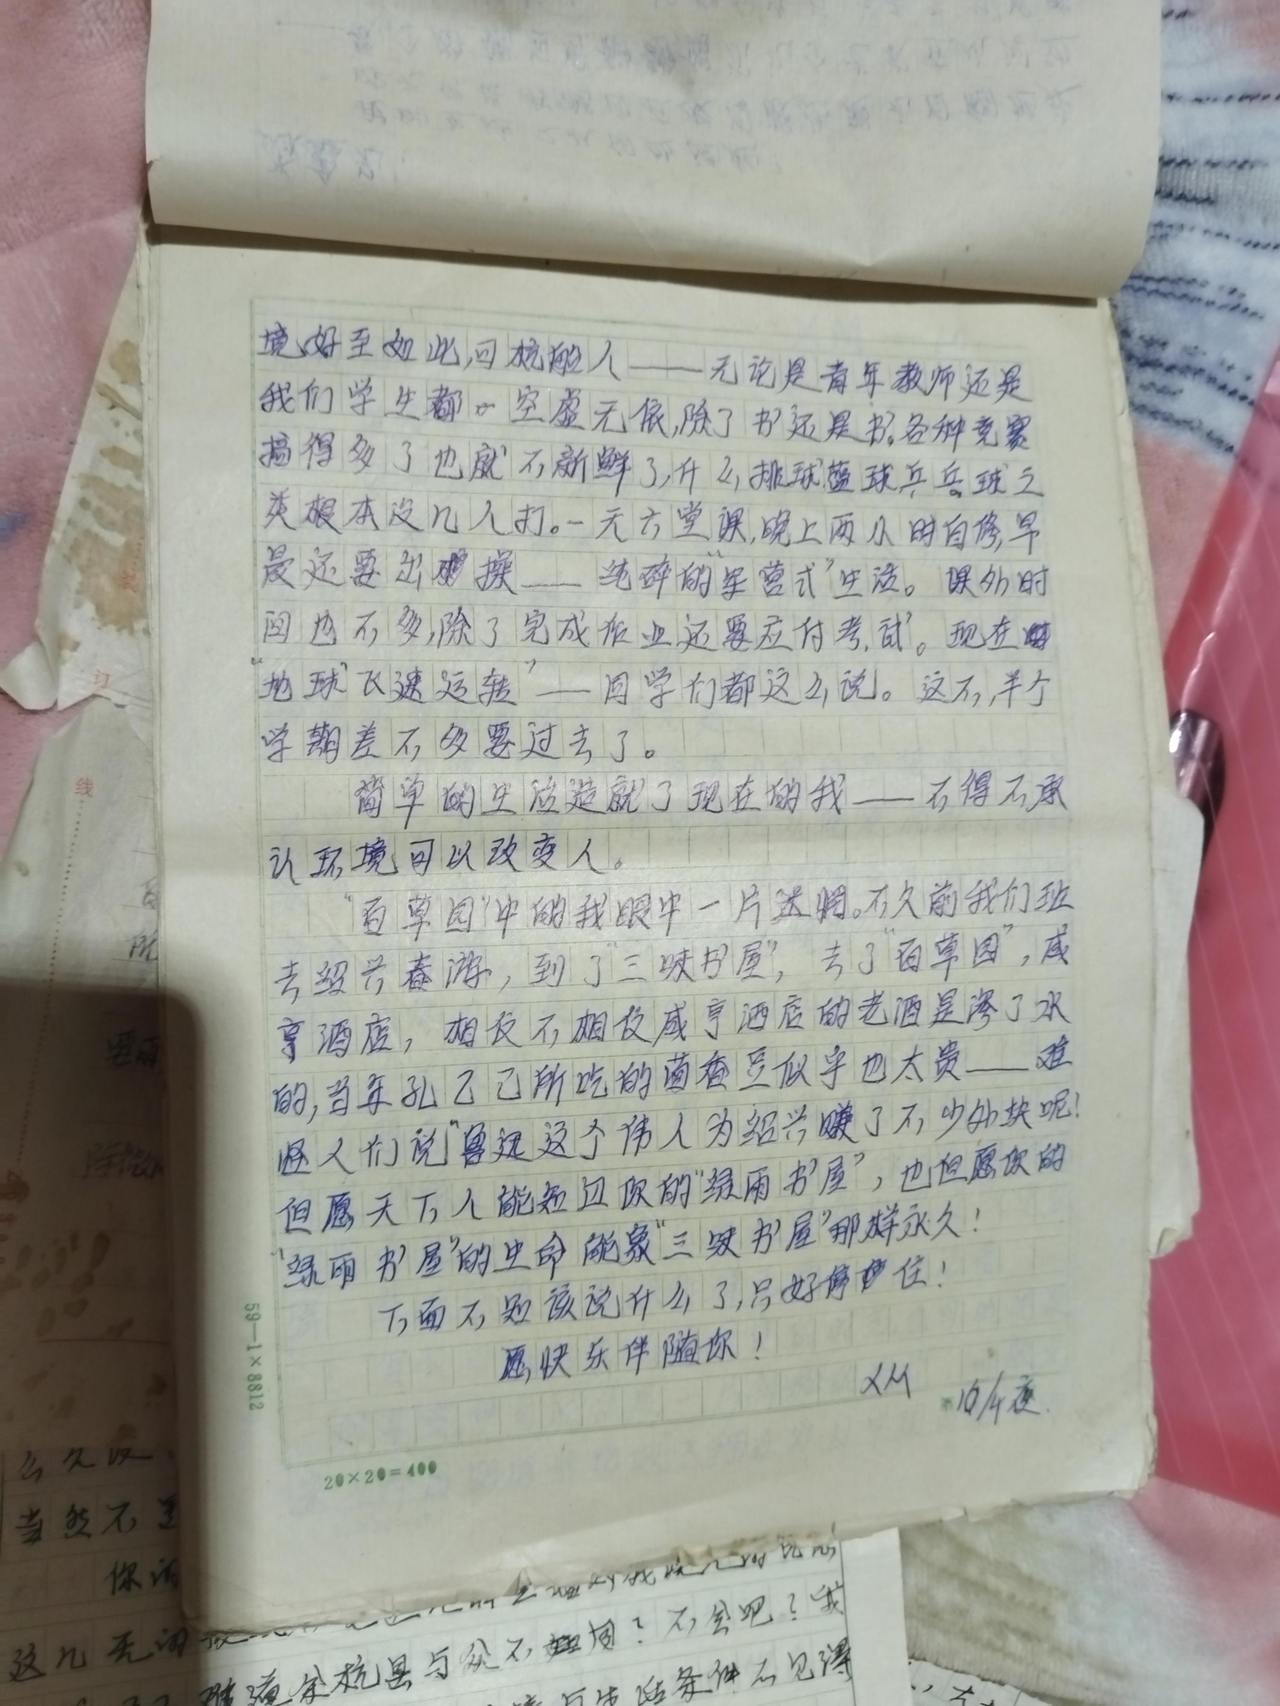 境好至如此,可杭的人——无论是青年教师还是
我们学生都 空虚无依,除了书还是书。各种竞赛
搞得多了也就不新鲜了,什么排球蓝球乒乓球之
类根本没几人打。一天六堂课,晚上两小时自修,早
晨还要出操——纯碎的"军营式"生活。课外时
间也不多,除了完成作业还要应付考试。现在
"地球飞速运转"——同学们都这么说。这不,半个
学期差不多要过去了。
简单的生活造就了现在的我——不得不承
认环境可以改变人。
"百草园"中的我眼中一片迷惘。不久前我们班
去绍兴春游,到了"三味书屋",去了"百草园",咸
亨酒店,相反不相反咸亨酒店的老酒是渗了水
的,当年孔乙己所吃的茴香豆似乎也太贵——难
怪人们说"鲁迅这个伟人为绍兴赚了不少外块呢!
但愿天下人能知过你的"绿雨书屋",也但愿你的
"绿雨书屋"的生命能象"三味书屋"那样永久!
下面不知该说什么了,只好停住!
愿快乐伴随你!
10/4夜.
59—1×8812
20×20=400
线
订
么久没
当然不是
这几天
难道余杭县与众不同?不会吧?我
条件不见得